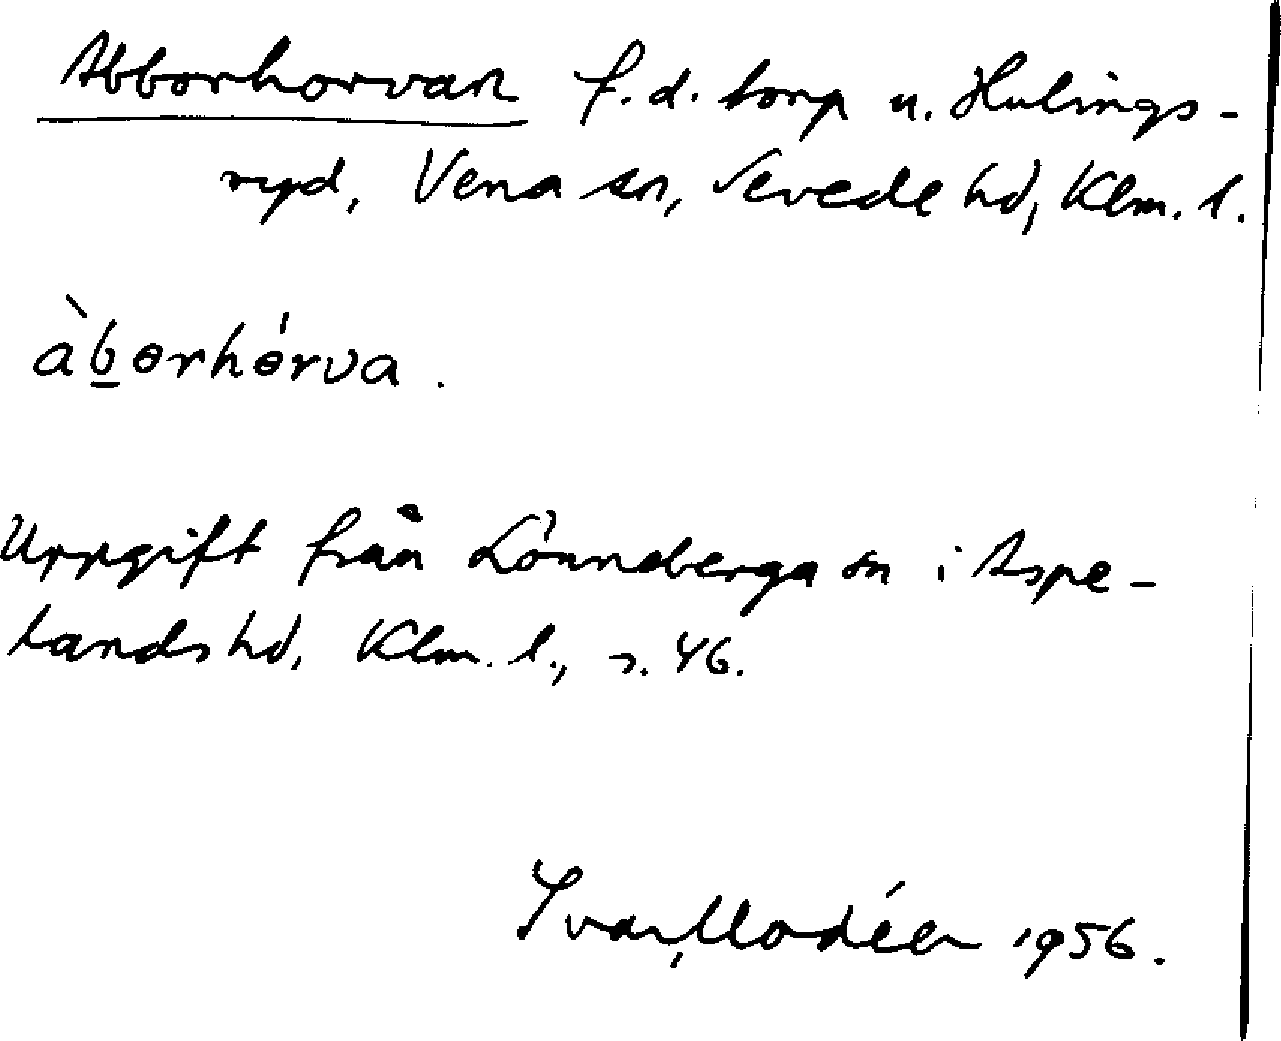 Abborhorvan f.d. torp u. Hulings-
ryd, Vena sn, Sevede hd, Klm. l.
àb̲ɵrhɵ́rva.
Uppgift från Lönneberga sn i Aspe-
lands hd, Klm. l., s. 46.
Ivar Modéer 1956.